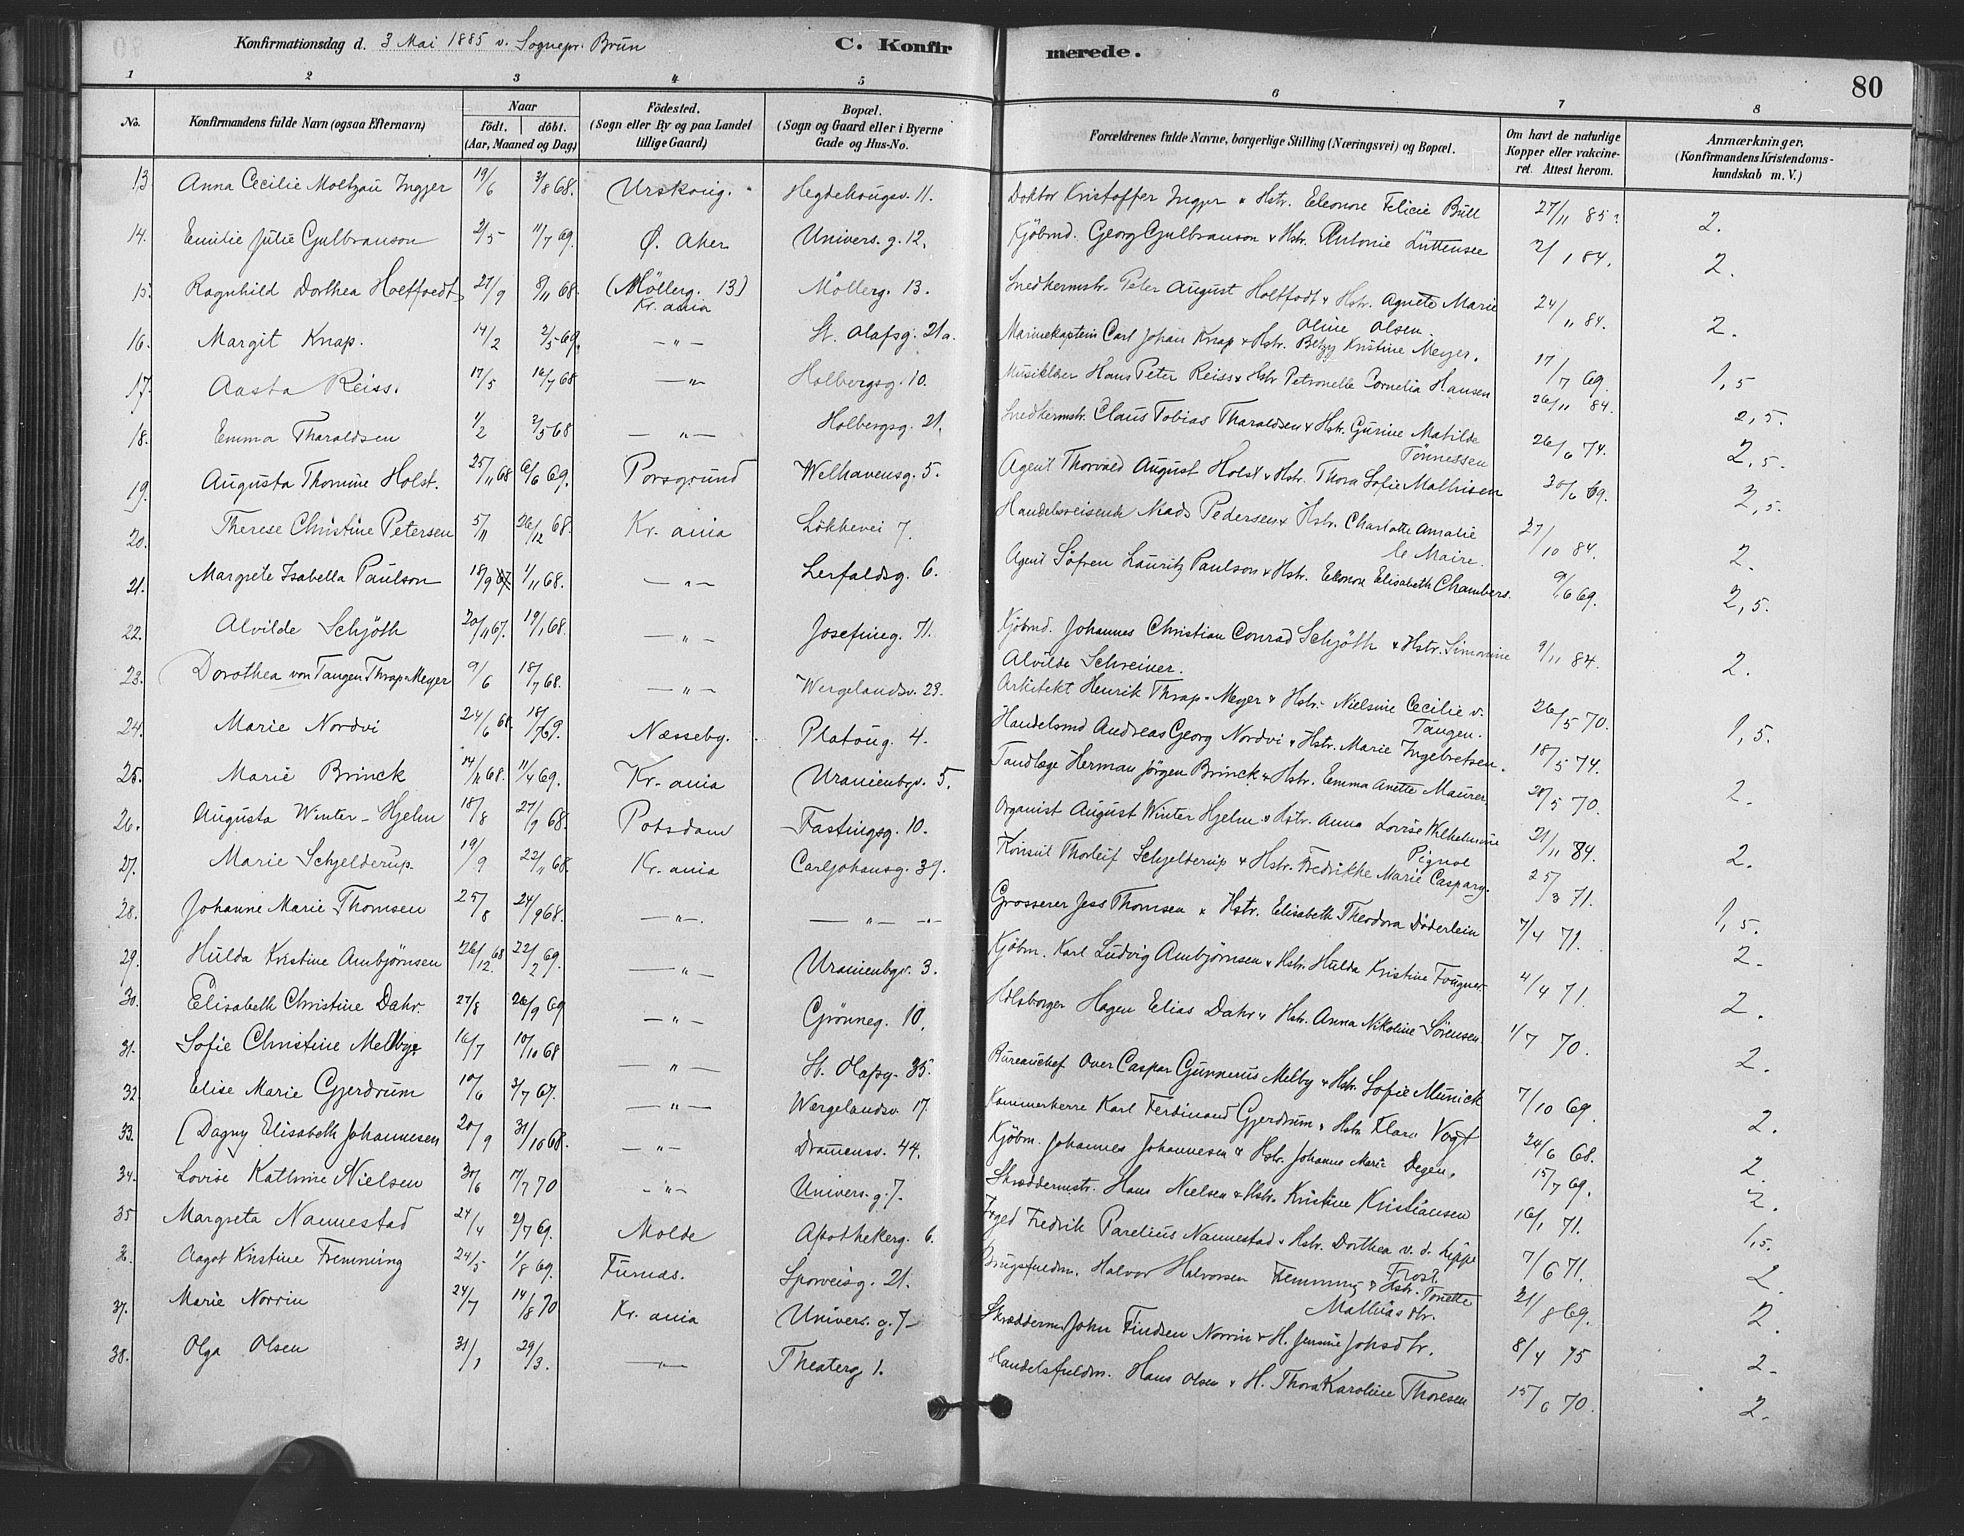 Konfirmationsdag d. 3 Mai 1885 v. Sognepr. Brun C. Konfirmerede. 80
1 2 3 4 5 6 7 8
No. Konfirmandens fulde Navn (ogsaa Efternavn) Naar født. døbt. (Aar, Maaned og Dag) Födested. (Sogn eller By og paa Landet tillige Gaard) Bopæl. (Sogn og Gaard eller i Byerne Gade og Hus-No. Forældrenes fulde Navne, borgerlige Stilling (Næringsvei) og Bopæl. Om havt de naturlige Kopper eller vakcineret. Attest herom. Anmærkninger. (Konfirmandens Kristendomskundskab m. V.)
13 Anna Cecilie Moltzau Ingjer 19/6 3/8 68. Urskoug. Hegdehougsv. 11. Doktor Kristoffer Ingjer & Hstr. Eleonore Felicie Bull 27/11 85? 2.
14. Emilie Julie Gulbranson 2/5 11/7 69. Ø. Aker Univers. g. 12. Kjöbmd. Georg Gulbranson & Hstr. Antonie Lüttensee 2/1 84. 2.
15. Ragnhild Dorthea Holtfodt 27/9 8/11 68. (Möllerg. 13) Kr. ania Möllerg. 13. Snedkermstr. Peter August Holtfodt & Hstr. Agnete Marie Oline Olsen. 24/11 84. 2.
16. Margit Knap. 14/2 2/5 69. —"— St. Olafsg. 21a. Marinekaptein Carl Johan Knap & Hstr. Betzy Kristine Meyer. 17/7 69. 1,5
17. Aasta Reiss. 17/5 16/7 68 —"— Holbergsg. 10. Musiklær Hans Peter Reiss & Hstr Petronelle Cornelia Hansen 26/11 84. 2,5.
18. Emma Tharaldsen 1/2 2/5 68 —"— Holbergsg. 21. Snedkermstr. Claus Tobias Tharaldsen & Hstr. Gurine Matilde Tönnessen 26/6 74. 2,5.
19. Augusta Thomine Holst. 25/11 68 6/6 69. Porsgrund Welhavensg. 5. Agent Thorvald August Holst & Hstr. Thora Sofie Mathisen 30/6 69. 2,5.
20. Therese Christine Petersen 5/11 26/12 68. Kr. ania Lökkevei 7. Handelsreisende Mads Pedersen & Hstr. Charlotte Amalie le Maire. 27/10 84. 2.
21. Margrete Isabella Paulson 18/9 67. 1/11 68. —"— Lerfaldsg. 6. Agent Söfren Lauritz Paulson & Hstr. Eleonore Elisabeth Chambers. 9/6 69. 2,5.
22. Alvilde Schjöth 20/11 67. 19/1 68. —"— Josefineg. 71. Kjöbmd. Johannes Christian Conrad Schjöth & Hstr. Simonine Alvilde Schreiner. 9/11 84. 2.
23. Dorothea von Tangen Thrap-Meyer 9/6 18/7 68. —"— Wergelandsv. 23. Arkitekt Henrik Thrap-Meyer & Hstr. Nielsine Cecilie v. Tangen. 26/5 70. 1,5.
24. Marie Nordvi 24/6 68. 18/7 69. Næsseby. Platoug. 4. Handelsmd Andreas Georg Nordvi & Hstr. Marie Ingebretsen. 18/5 74. 2.
25. Marie Brinck 14/11 68. 11/4 69. Kr. ania Uranienbgv. 5. Tandlæge Herman Jörgen Brinck & Hstr. Emma Anette Maurer. 20/5 70. 2.
26. Augusta Winter-Hjelm 18/8 27/9 68. Potsdam Fastingsg. 10. Organist August Winter Hjelm & Hstr. Anna Lovise Wilhelmine Pignol 21/11 84. 2.
27. Marie Schjelderup. 19/9 22/11 68. Kr. ania Carljohansg. 39. Konsul Thorleif Schjelderup & Hstr. Fredrikke Marie Caspary. 25/3 71. 1,5.
28. Johanne Marie Thomsen 25/8 24/9 68. —"— —"— Grosserer Jess Thomsen & Hstr. Elisabeth Theodora Döderlein 7/4 71. 2.
29. Hulda Kristine Ambjörnsen 26/12 68 22/2 69. —"— Uranienbgv. 3. Kjöbm. Karl Ludvig Ambjörnsen & Hstr. Hulda Kristine Fougner. 4/4 71. 2.
30. Elisabeth Christine Dahr. 27/8 26/9 69 —"— Grönneg. 10. Adlsborger Hagen Elias Dahr & Hstr. Anna Nikoline Sörensen. 1/7 70. 2.
31. Sofie Christine Melbye 16/7 10/10 68 —"— St. Olafsg. 35. Bureauchef Over Caspar Gunnerus Melby & Hstr. Sofie Munick 7/10 69. 2.
32. Elise Marie Gjerdrum 10/6 3/7 67. —"— Wergelandsv. 17. Kammerherre Karl Ferdinand Gjerdrum & Hstr. Klara Vogt 24/6 68. 2.
33. (Dagny Elisabeth Johannesen 20/9 31/10 68. —"— Dramensv. 44. Kjöbm. Johannes Johannesen & Hstr. Johanne Marie Degen. 15/7 69. 2.
34. Lovise Kathrine Nielsen 30/6 7/7 70 —"— Univers. g. 7. Skræddermstr. Hans Nielsen & Hstr. Kristine Kristiansen 16/1 71. 1,5.
35 Margreta Nannestad 24/4 2/7 69. Molde Apothekerg. 6. Foged Fredrik Parelius Nannestad & Hstr. Dorthea v. d. Lippe Frost. 7/6 71. 2.
36. Aagot Kristine Fremming 24/5 1/8 69. Furnæs. Sporveisg. 21. Brugsfuldm. Halvor Halvorsen Fremming & Hstr. Tonette Mathiasdtr. 21/8 69. 2.
37. Marie Norrin 24/7 14/8 70 Kr. ania Univers. g. 7 Skrædderm John Findsen Norrin & H. Jensine Johsdtr. 8/4 75 2.
38. Olga Olsen 31/1 29/3. —"— Theaterg 1. Handelsfuldm. Hans Olsen & H. Thora Karoline Thoresen 15/6 70. 2.